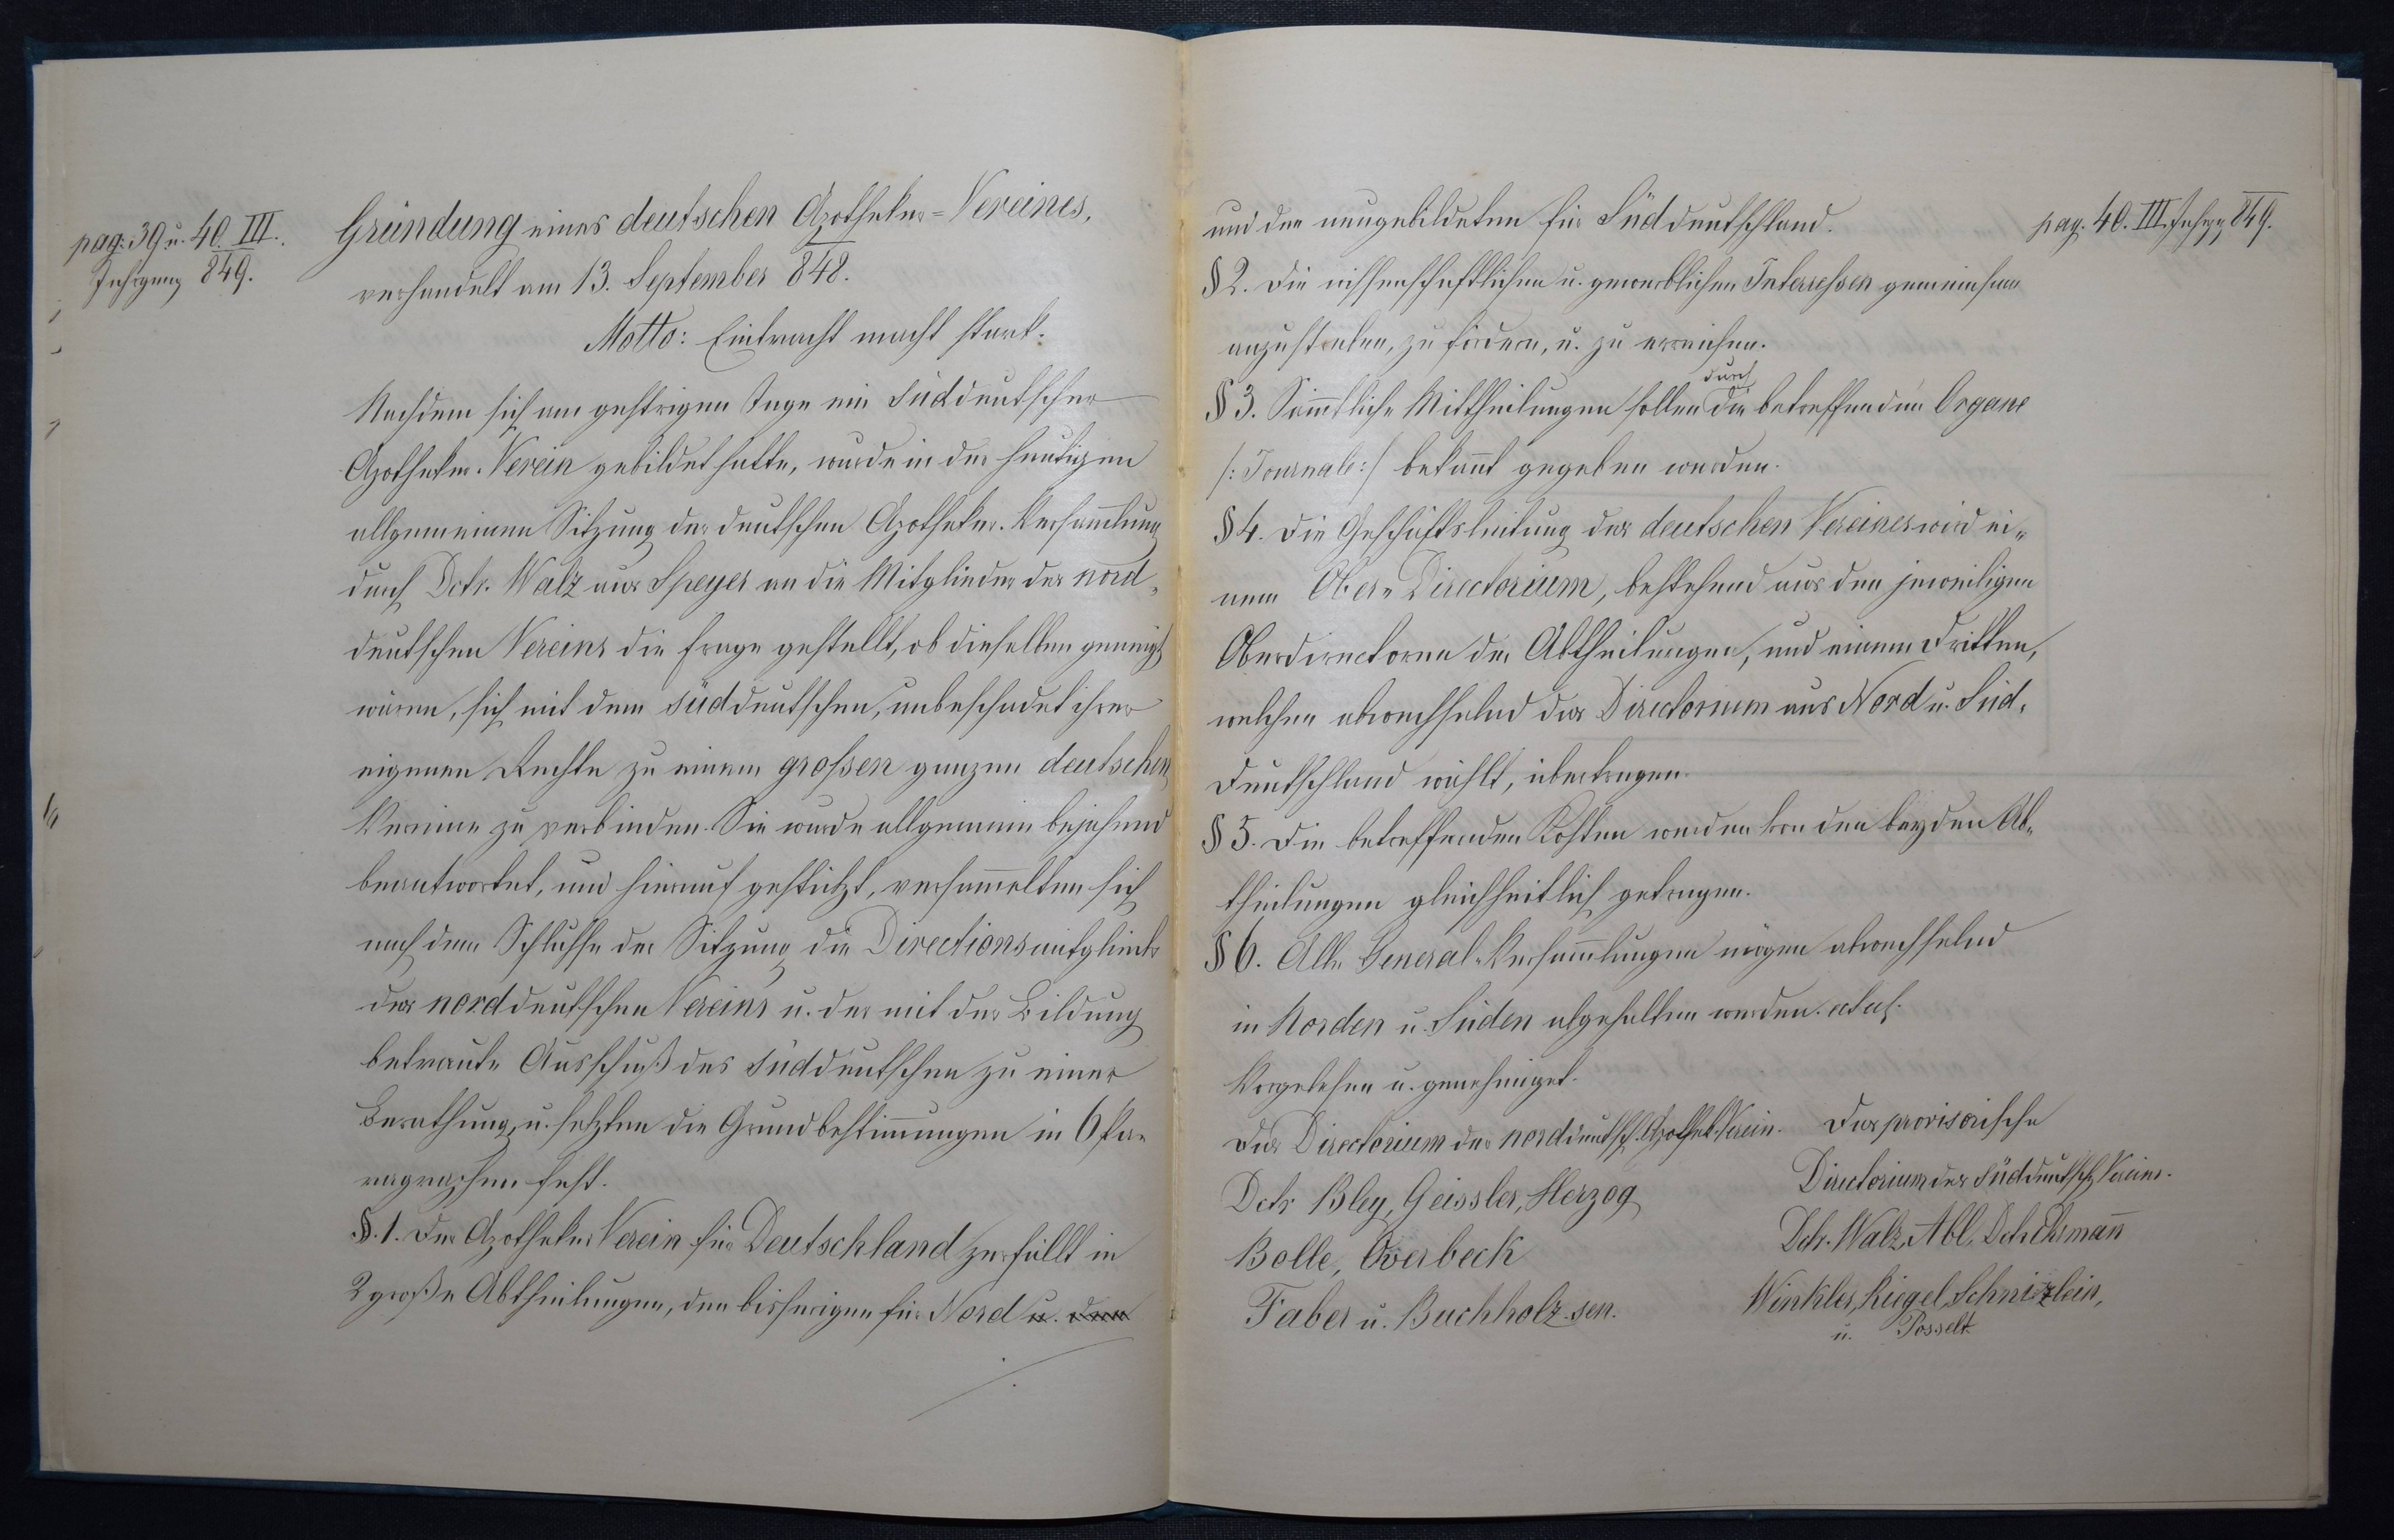 pag: 39 u. 40. III.
Jahrgang 849.
Gründung eines deutschen Apotheker=Vereines,
verhandelt am 13. September 848.
Motto: Eintracht macht stark.
Nachdem sich am gestrigen Tage ein süddeutscher
Apotheker-Verein gebildet hatte, wurde in der heutigen
allgemeinen Sitzung der deutschen Apotheker-Versam̄lung
durch Dctr. Walz aus Speyer an die Mitglieder des nord-
deutschen Vereins die Frage gestellt, ob dieselben geneigt
wären, sich mit dem süddeutschen, unbeschadet ihrer
eigenen Rechte zu einem großen ganzen deutschen
Vereine zu verbinden. Sie wurde allgemein bejahend
beantwortet, und hierauf gestützt, versam̄elten sich
nach dem Schlusse der Sitzung die Directionsmitglieder
des norddeutschen Vereins u. der mit der Bildung
betraute Ausschuß des süddeutschen zu einer
Berathung, u. setzten die Grundbestim̄ungen in 6 Pa-
ragraphen fest.
§. 1. Der Apotheker Verein für Deutschland zerfällt in
2 große Abtheilungen, den bisherigen für Nord u. den
und den neugebildeten für Süddeutschland.
pag. 40. III. Jahrgg 849.
§ 2. Die wissenschaftlichen u. gewerblichen Interressen gemeinsam
anzustreben, zu fördern, u. zu erreichen.
§ 3. Säm̄tliche Mittheilungen sollen durch die betreffenden Organe
/: Journale :/ bekan̄t gegeben werden.
§ 4. Die Geschäftsleitung des deutschen Vereines wird ei-
nem Ober-Directorium, bestehend aus den jeweiligen
Oberdirectoren der Abtheilungen, und einem Dritten,
welchen abwechselnd das Directorium aus Nord u. Süd-
Deutschland wählt, übertragen.
§ 5. Die betreffenden Kosten werden von den beyden Ab-
theilungen gleichheitlich getragen.
§ 6. Alle General-Versam̄lungen mögen abwechselnd
in Norden u. Süden abgehalten werden.
Vorgelesen u. genehmiget.
Das Directorium des norddeutsch. Apothek. Verein.
Dctr Bley, Geissler, Herzog
Bolle, Overbeck
Faber u. Buchholz. sen.
Das provisorische
Directorium des süddeutsch. Vereins.
Dctr. Walz, Abl, Dctr Ehrman̄
Winkler, Riegel, Schnizlein,
u. Posselt